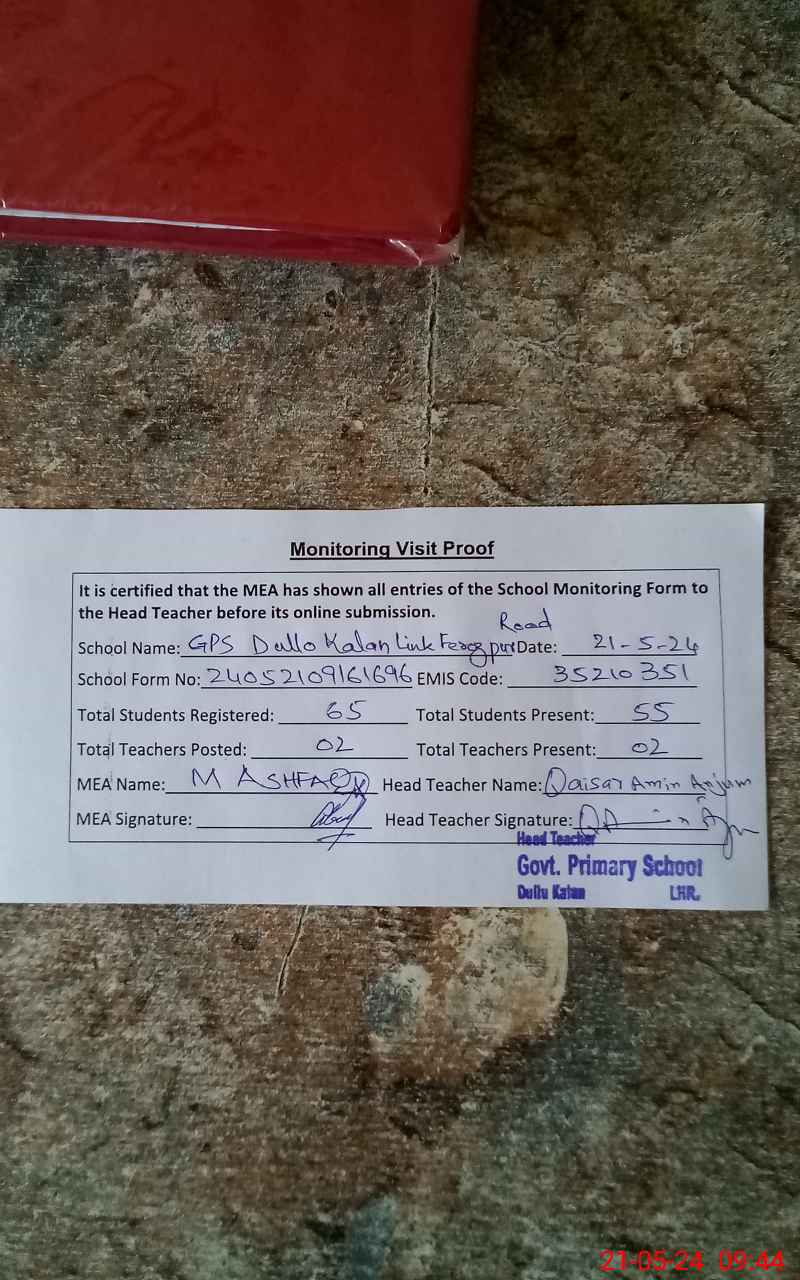 Monitoring Visit Proof
It is certified that the MEA has shown all entries of the School Monitoring Form to
the Head Teacher before its online submission.
Road
School Name: GPS Dullo Kalan Link Ferozpur Date: 21-5-24
School Form No: 24052109161696 EMIS Code: 35210351
Total Students Registered: 65 Total Students Present: 55
Total Teachers Posted: 02 Total Teachers Present: 02
MEA Name: M ASHFAQ Head Teacher Name: Qaisar Amin Anjum
MEA Signature: Head Teacher Signature:
Head Teacher
Govt. Primary School
Dullu Kalan LHR.
21-05-24 09:44